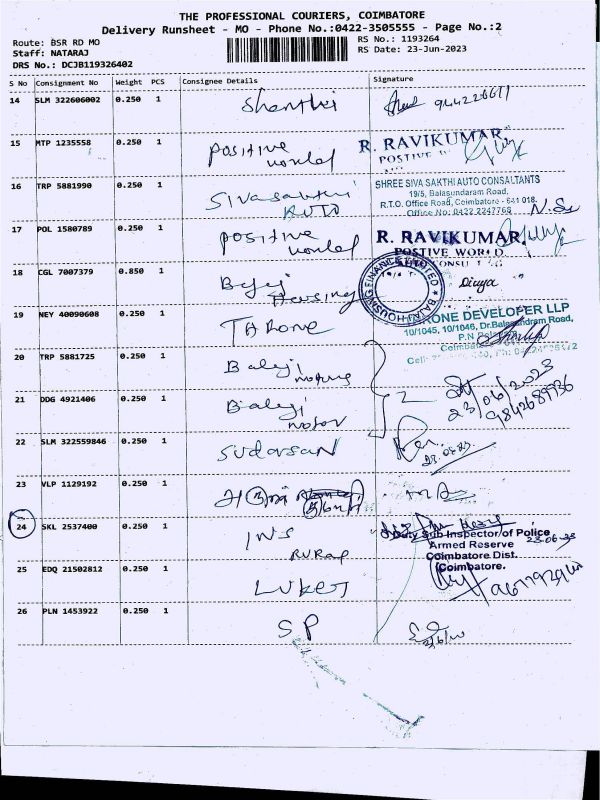 THE PROFESSIONAL COURIERS, COIMBATORE
Delivery Runsheet - MO - Phone No.:0422-3505555 - Page No.:2
Route: BSR RD MO
Staff: NATARAJ
DRS No.: DCJB119326402
RS No.: 1193264
RS Date: 23-Jun-2023
S No Consignment No Weight PCS Consignee Details Signature
14 SLM 322606002 0.250 1 Shanthi
15 MTP 1235558 0.250 1 positive world R. RAVIKUMAR,
POSTIVE
16 TRP 5881990 0.250 1 Sivasakthi
AUTO
SHREE SIVA SAKTHI AUTO CONSULTANTS
19/5, Balasundaram Road,
R.T.O. Office Road, Coimbatore - 641 018.
Office No: 0422 2247768
17 POL 1580789 0.250 1 positive world R. RAVIKUMAR,
POSTIVE WORLD
18 CGL 7007379 0.850 1 Bajaj
Housing
Divya
19 NEY 40090608 0.250 1 THRone
RONE DEVELOPER LLP
10/1045, 10/1046, Dr.Balasundram Road,
20 TRP 5881725 0.250 1 Balaji
motors
21 DDG 4921406 0.250 1 Balaji
motor
2
23/06/2023
9842689936
22 SLM 322559846 0.250 1 Sudarsan
23.06.23
23 VLP 1129192 0.250 1
24 SKL 2537400 0.250 1 INS
RURAL
Duty Sub Inspector of Police
Armed Reserve
Coimbatore Dist.
Coimbatore.
23.06.23
25 EDQ 21502812 0.250 1
26 PLN 1453922 0.250 1 SP